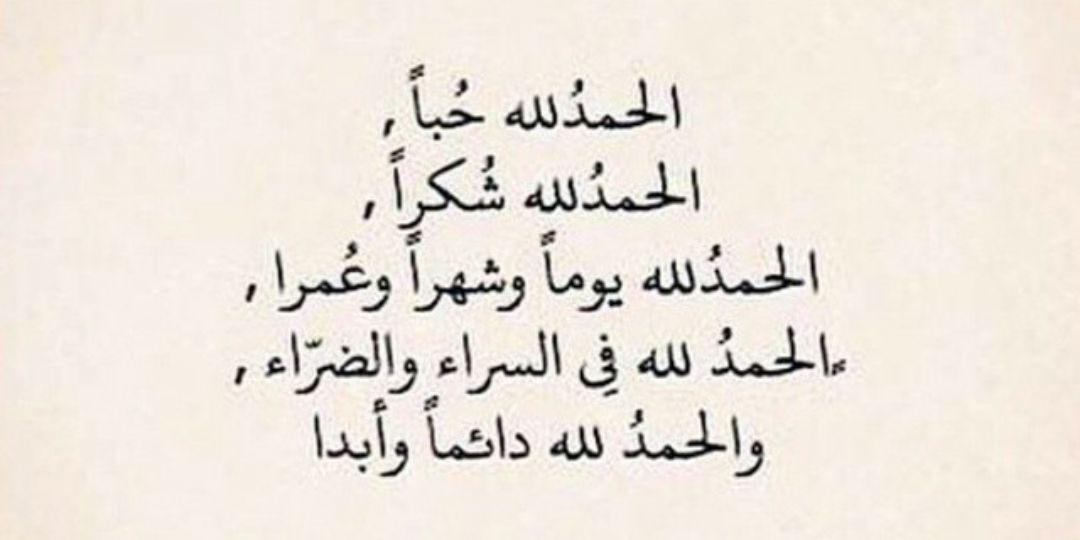 الحمدُلله حُباً ,
الحمدُلله شُكراً ,
الحمدُلله يوماً وشهراً وعُمرا ,
الحمدُ لله فِي السراء والضرّاء ,
والحمدُ لله دائماً وأبدا